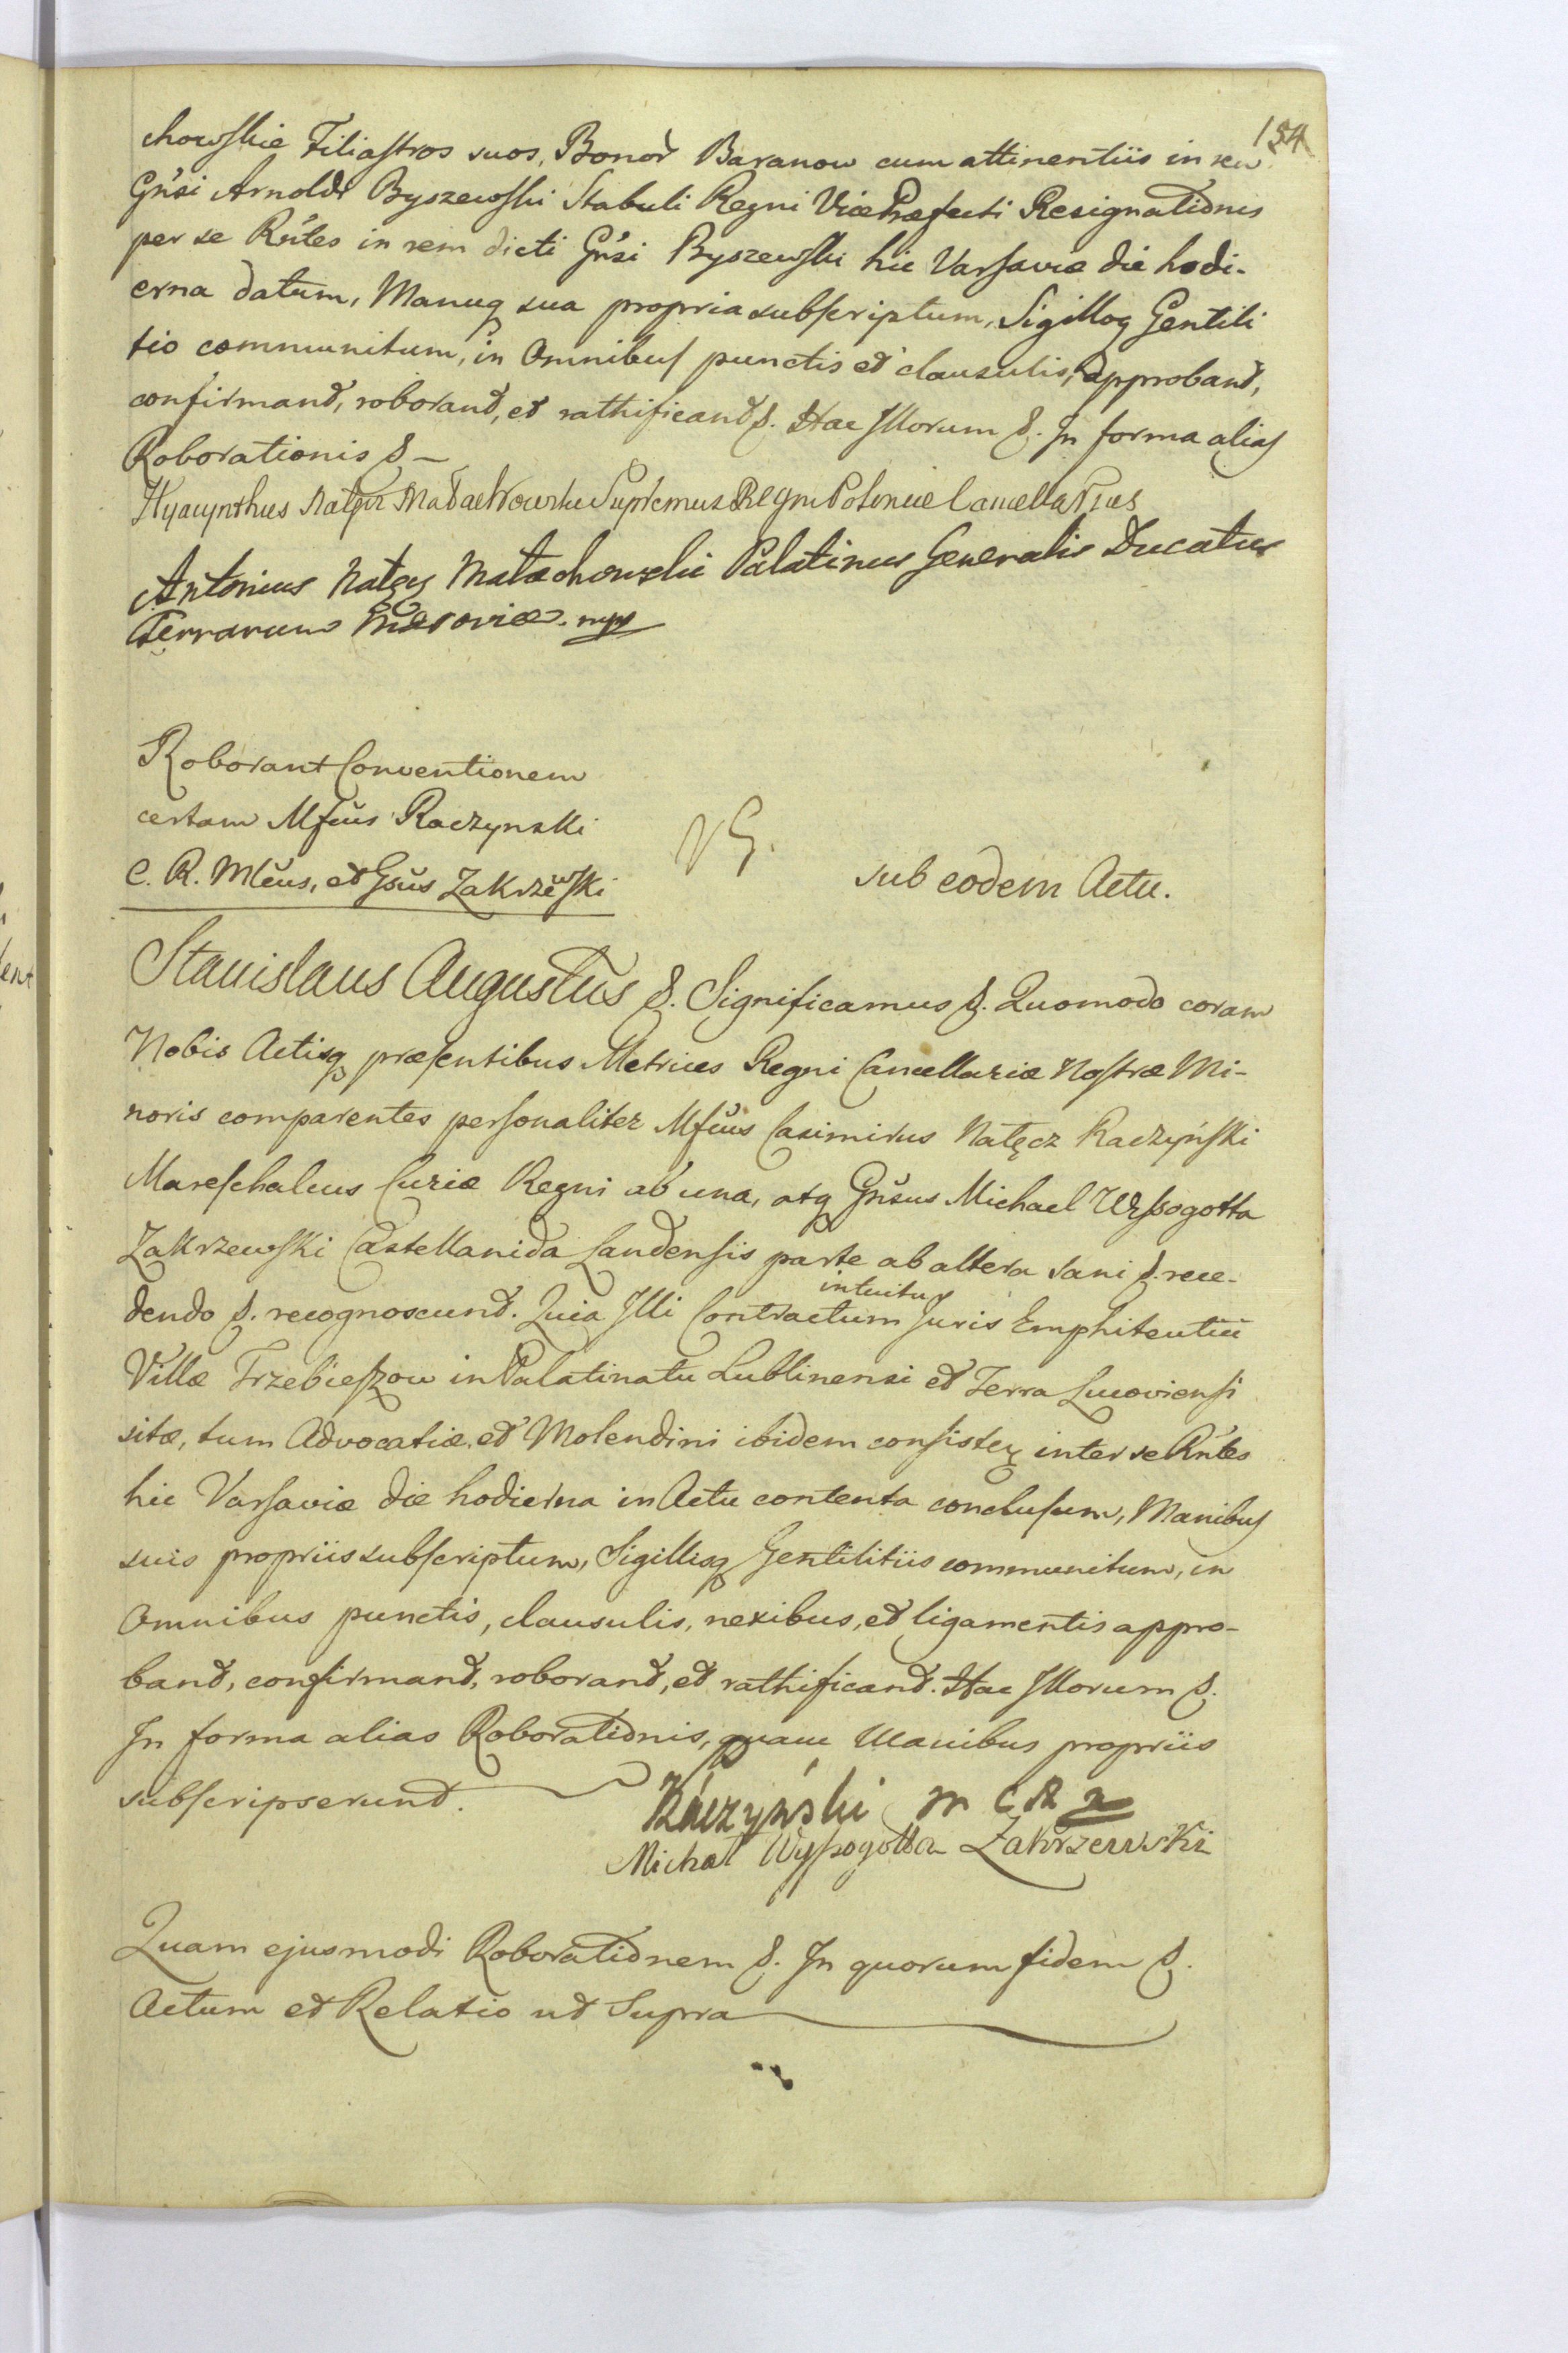 154
chowskie Filiastros suos, Bonor̃ Baranow cum attinentiis in rem
Gñsi Arnoldi Byszewski Stabuli Regni Vice Præfecti Resignatiõnis
per se Rñtes in rem dicti Gñsi Byszewski hic Varsaviæ die hodi-
erna datum, Manuq sua propria subscriptum, Sigilloq Gentili
tio communitum, in Omnibus punctis et clausulis, approband,
confirmand, roborand, et rathificand &. Hac Illorum &. In forma alias
Roborationis & –
Hyacynthus Nałęcz Małachowski Supremus Regni Poloniæ Cancellarius
Antonius Nałęcz Małachowski Palatinus Generalis Ducatus
Terrarum Masoviæ. mp
Roborant Conventionem
certam Mfcus Raczynski
C. R. Mlcus, et Gsus Zakrzewski
sub eodem Actu.
Stanislaus Augustus &. Significamus &. Quomodo coram
Nobis Actisq præsentibus Metrices Regni Cancellariæ Nostræ Mi-
noris comparentes personaliter Mfcus Casimirus Nałęcz Raczyński
Mareschalcus Curiæ Regni ab una, atq Gñsus Michael Wyssogotta
Zakrzewski Castellanida Landensis parte ab altera sani &. rece-
dendo &. recognoscund. Quia Illi Contractum intuitu Juris Emphiteutici
Villæ Trzebieszow in Palatinatu Lublinensi et Terra Lucoviensi
sitæ, tum Advocatiæ et Molendini ibidem consisten inter se Rñtes
hic Varsaviæ die hodierna in Actu contenta conclusum, Manibus
suis propriis subscriptum, Sigillisq Gentilitiis communitum, in
Omnibus punctis, clausulis, nexibus, et ligamentis appro-
band, confirmand, roborand, et rathificand. Hac Illorum &.
In forma alias Roboratiõnis, quam Manibus propriis
subscripserund.
Raczyński M C R
Michał Wyssogotta Zakrzewski
Quam ejusmodi Roboratiõnem &. In quorum fidem &.
Actum et Relatio ut Supra